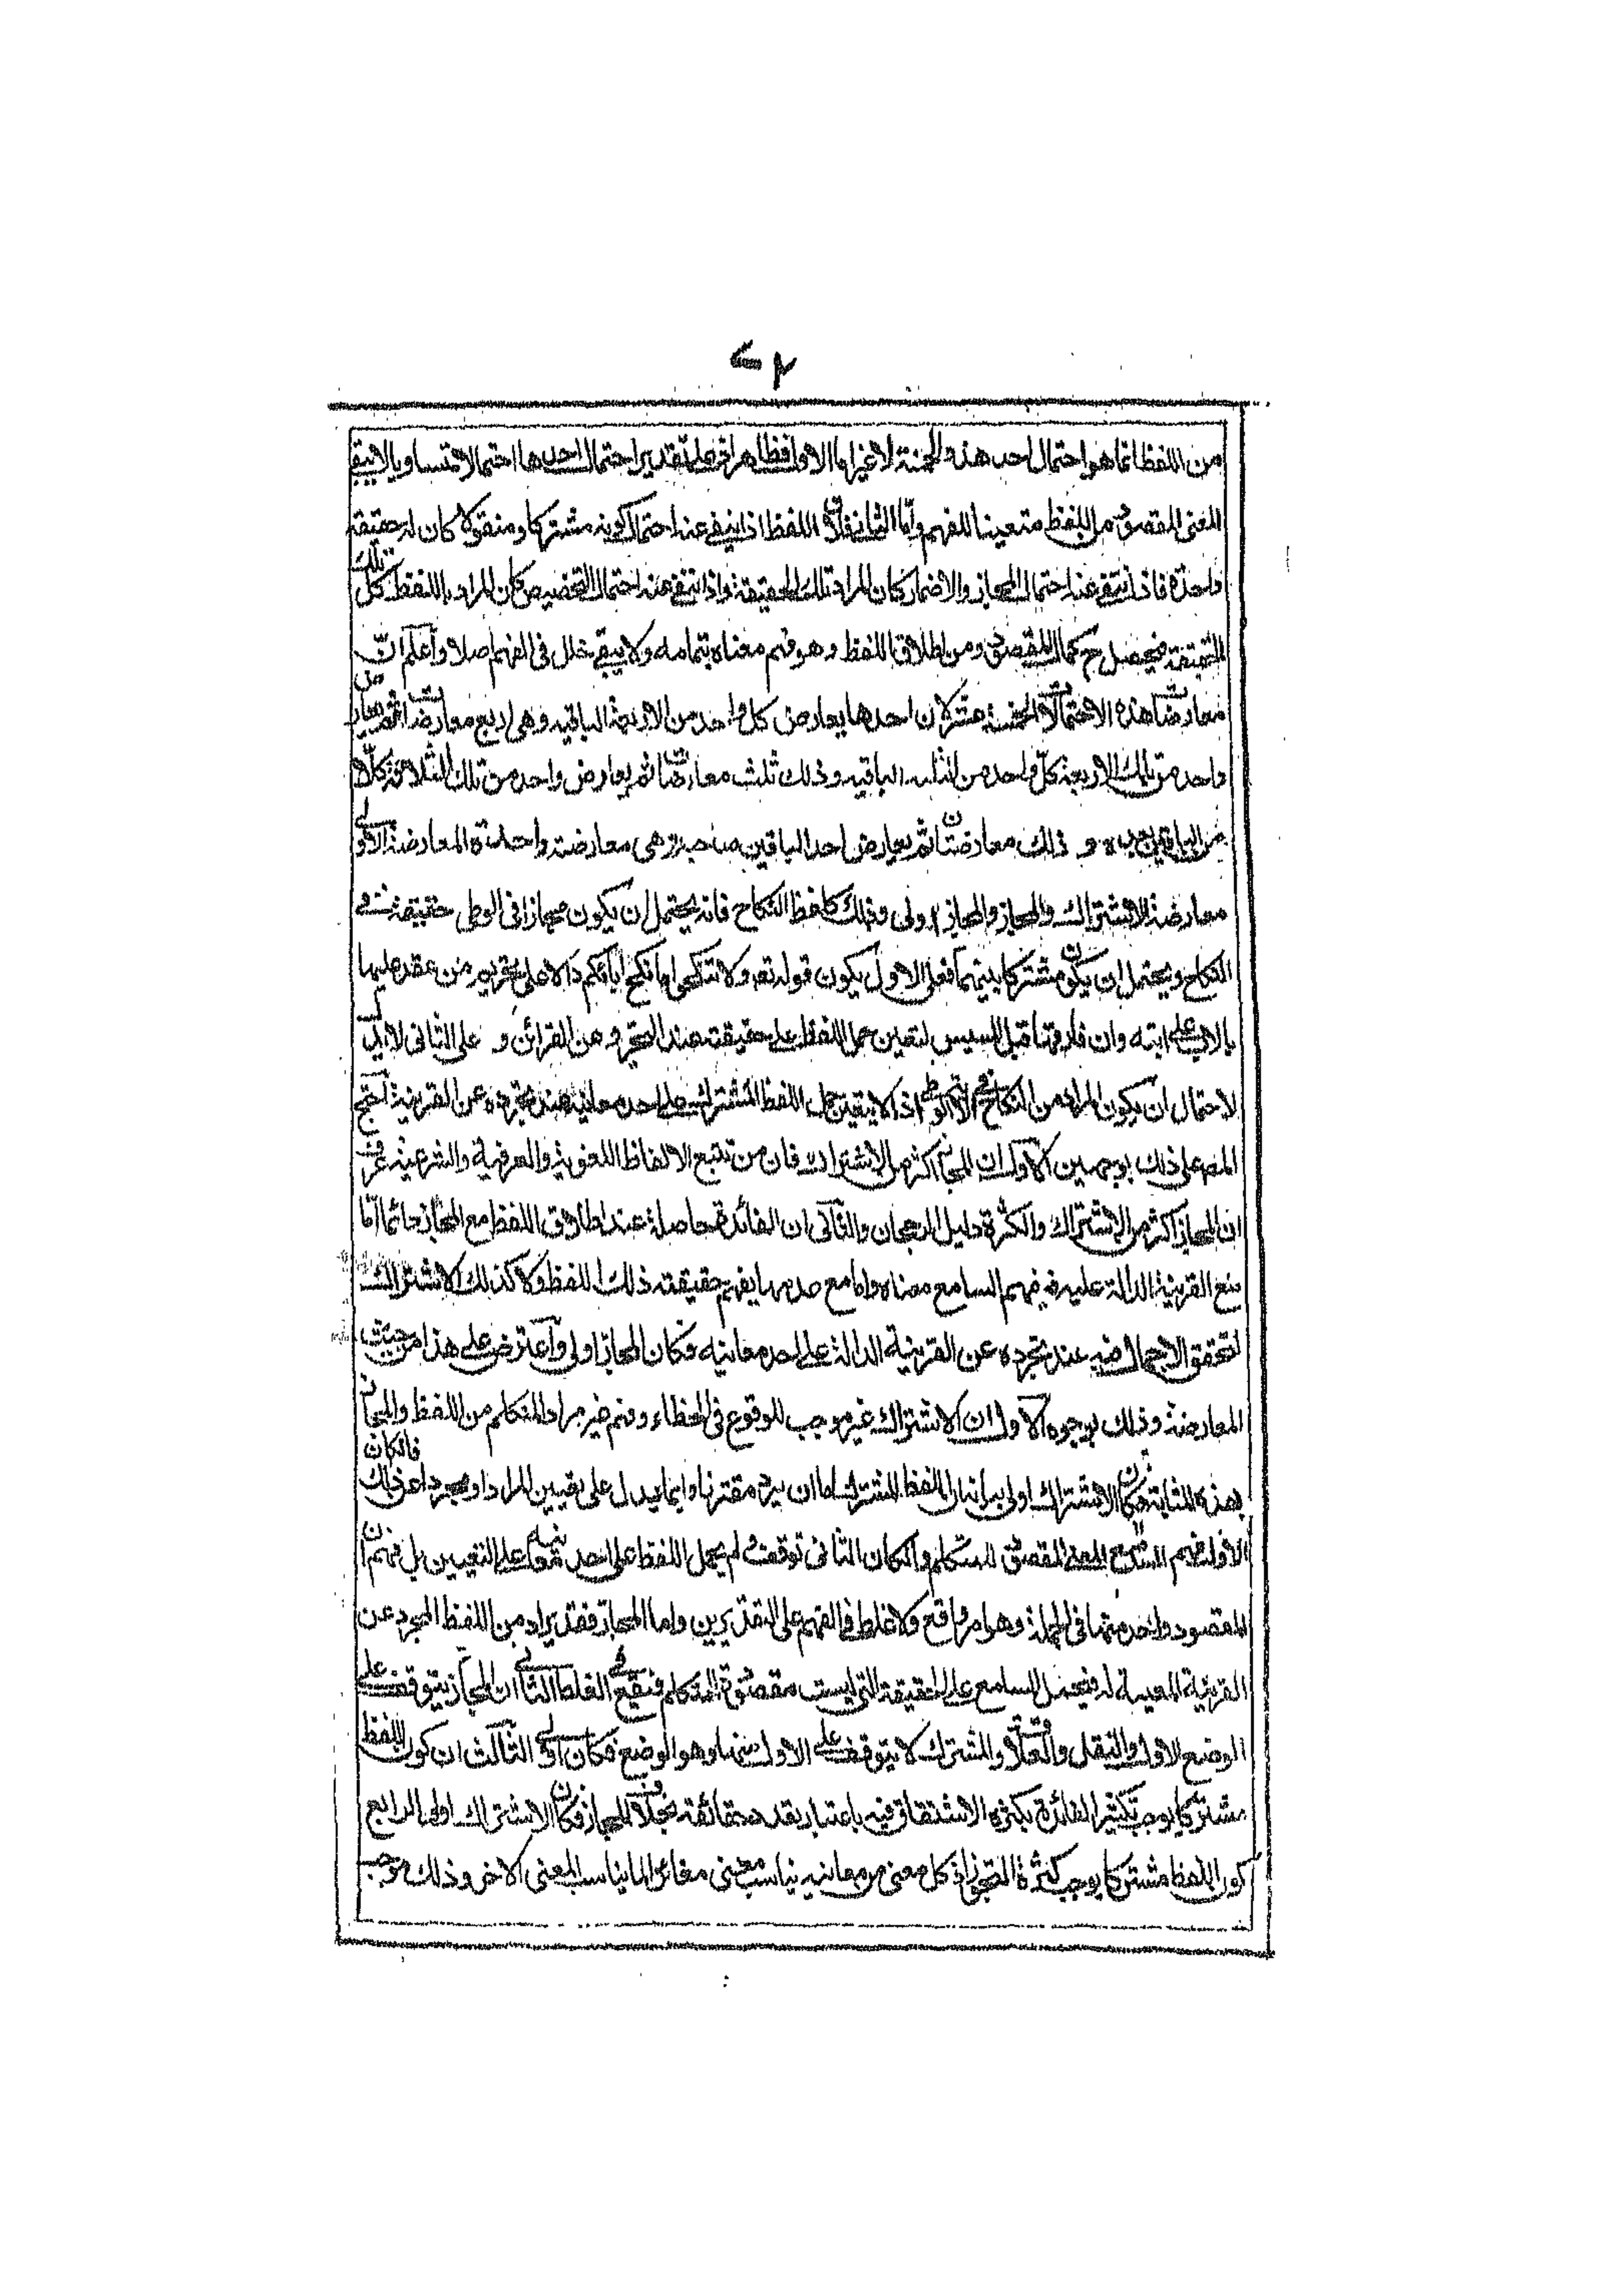 من اللفظ انما هو احتمال احد هذه الخمسة لا غير اما الاول فظاهر اذ على تقدير احتمال احدها احتمالا متساويا لا يبقى
المعنى المقصود من اللفظ متعينا للفهم واما الثانى فلان اللفظ اذا نفى عنه احتمال كونه مشتركا ومنقولا كان له حقيقة
واحدة فاذا انتفى عنه احتمال المجاز والاضمار كان المراد تلك الحقيقة واذا انتفى عنه احتمال التخصيص كان المراد باللفظ كل تلك
الحقيقة فيحصل ح كمال المقصود من اطلاق اللفظ وهو فهم معناه بتمامه ولا يبقى خلل فى الفهم اصلا واعلم ان
معارضات هذه الاحتمالات الخمسة عشر لان احدها يعارض كل واحد من الاربعة الباقيه وهى اربع معارضات ثم يعارض
واحد من تلك الاربعة كل واحد من الثلثه الباقيه وذلك ثلث معارضات ثم يعارض واحد من تلك الثلاثة كلا
من الباقيين وذلك معارضتان ثم يعارض احد الباقيين صاحبه وهى معارضة واحدة المعارضة الاولى
معارضة الاشتراك والمجاز والمجاز اولى وذلك كلفظ النكاح فانه يحتمل ان يكون مجازا فى الوطى حقيقة فى
النكاح ويحتمل ان يكون مشتركا بينهما فعلى الاول يكون قوله تعه ولا تنكحوا ما نكح اباؤكم دالا على تحريم من عقد عليها
بالاب على ابنه وان فارقها قبل المسيس لتعين حمل اللفظ على حقيقته عند التجرد عن القرائن و على الثانى لا يدل
لاحتمال ان يكون المراد من النكاح الوطى اذ لا يتعين حمل اللفظ المشترك على احد معانيه عند تجرده عن القرينة احتج
المصه على ذلك بوجهين الاول ان المجاز اكثر من الاشتراك فان من تتبع الالفاظ اللغوية والعرفية والشرعية عرف
ان المجاز اكثر من الاشتراك والكثرة دليل الرجحان والثانى ان الفائدة حاصلة عند اطلاق اللفظ مع المجاز دائما اما
مع القرينة الدالة عليه فيفهم السامع معناه واما مع عدمها يفهم حقيقته ذلك اللفظ ولا كذلك الاشتراك
لتحقق الاجمال فيه عند تجرده عن القرينة الدالة على احد معانيه فكان المجاز اولى واعترض على هذا من حيث
المعارضة وذلك بوجوه الاول ان الاشتراك غير موجب للوقوع فى الخطاء وفهم غير مراد المتكلم من اللفظ والمجاز
بهذه المثابة فكان الاشتراك اولى بيانه ان اللفظ المشترك اما ان يرد مقترنا بما يدل على تعيين المراد او مجردا عن ذلك فان كان
الاول فهم السامع المعنى المقصود للمتكلم وان كان الثانى توقف ولم يحمل اللفظ على احد معانيه على التعيين بل فهم ان
المقصود واحد منها فى الجملة وهو امر واقع ولا غلط فى الفهم على التقديرين واما المجاز فقد يراد من اللفظ المجرد عن
القرينة المعينة له فيحمل السامع على الحقيقة التى ليست مقصودة للمتكلم فيقع فى الغلط الثانى ان المجاز يتوقف على
الوضع الاول والنقل والعلاقة والمشترك لا يتوقف على الاول منها وهو الوضع فكان اولى الثالث ان كون اللفظ
مشتركا يوجب تكثير الفائدة بكثرة الاشتقاق فيه باعتبار تعدد حقائقه بخلاف المجاز فكان الاشتراك اولى الرابع
كون اللفظ مشتركا يوجب كثرة التجوز اذ كل معنى من معانيه يناسب معنى مغائرا لما يناسب المعنى الاخر وذلك موجب